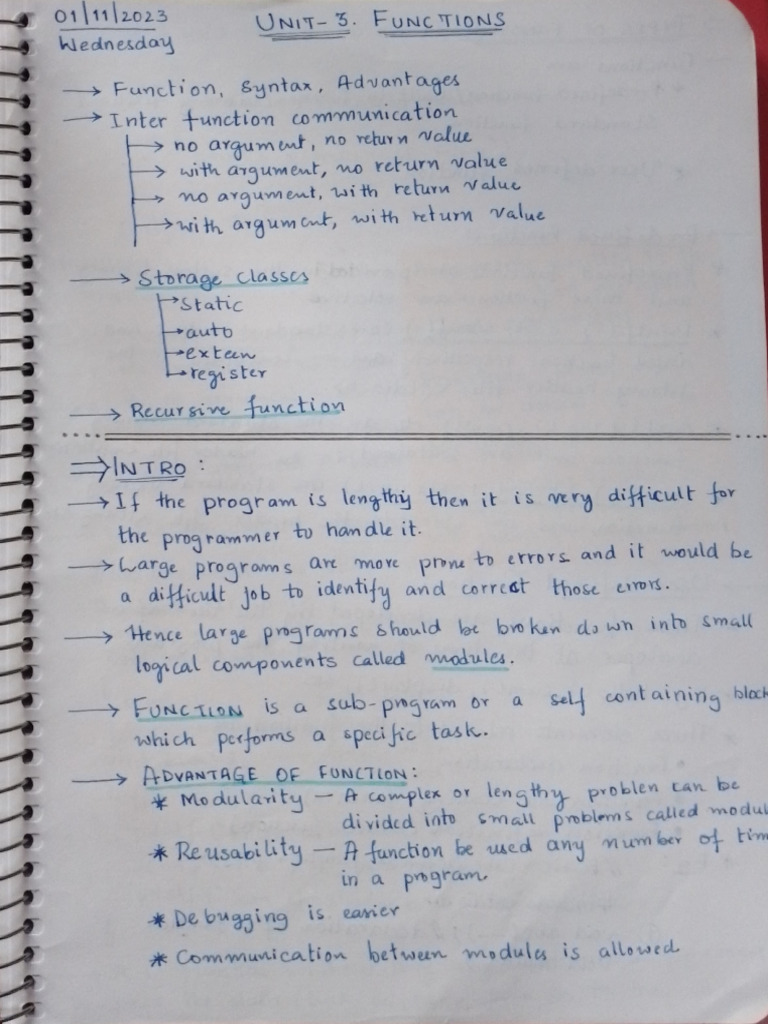 01/11/2023
Wednesday
UNIT-3. FUNCTIONS
→ Function, Syntax, Advantages
→ Inter function communication
→ no argument, no return value
→ with argument, no return value
→ no argument, with return value
→ with argument, with return value
→ Storage classes
→ Static
→ auto
→ extern
→ register
→ Recursive function
⇒ INTRO :
→ If the program is lengthy then it is very difficult for
the programmer to handle it.
→ Large programs are more prone to errors and it would be
a difficult job to identify and correct those errors.
→ Hence large programs should be broken down into small
logical components called modules.
→ FUNCTION is a sub-program or a self containing block
which performs a specific task.
→ ADVANTAGE OF FUNCTION:
* Modularity — A complex or lengthy problen can be
divided into small problems called modul
* Reusability — A function be used any number of tim
in a program
* Debugging is easier
* Communication between modules is allowed